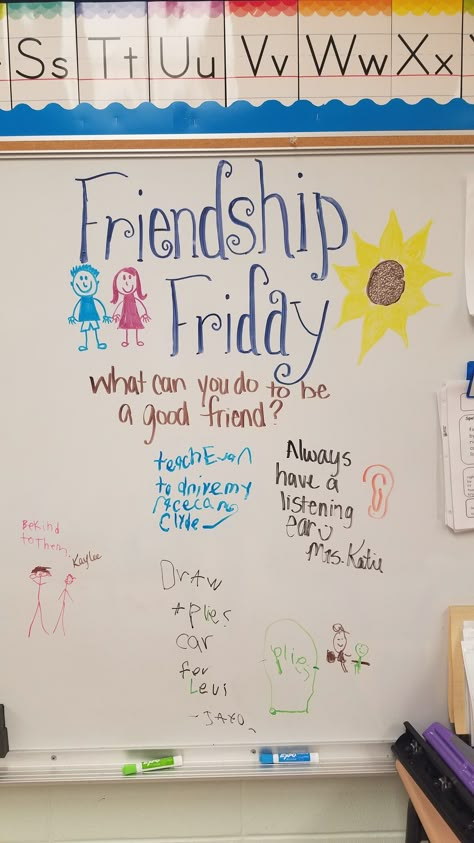 Ss Tt Uu Vv Ww Xx
Friendship
Friday
what can you do to be
a good friend?
teach Evan
to drive my
racecar
Clyde
Always
have a
listening
ear
Mrs. Katie
Be Kind
to Them.
Kaylee
Draw
car
for
Levi
- JAXO
EXPO
EXPO